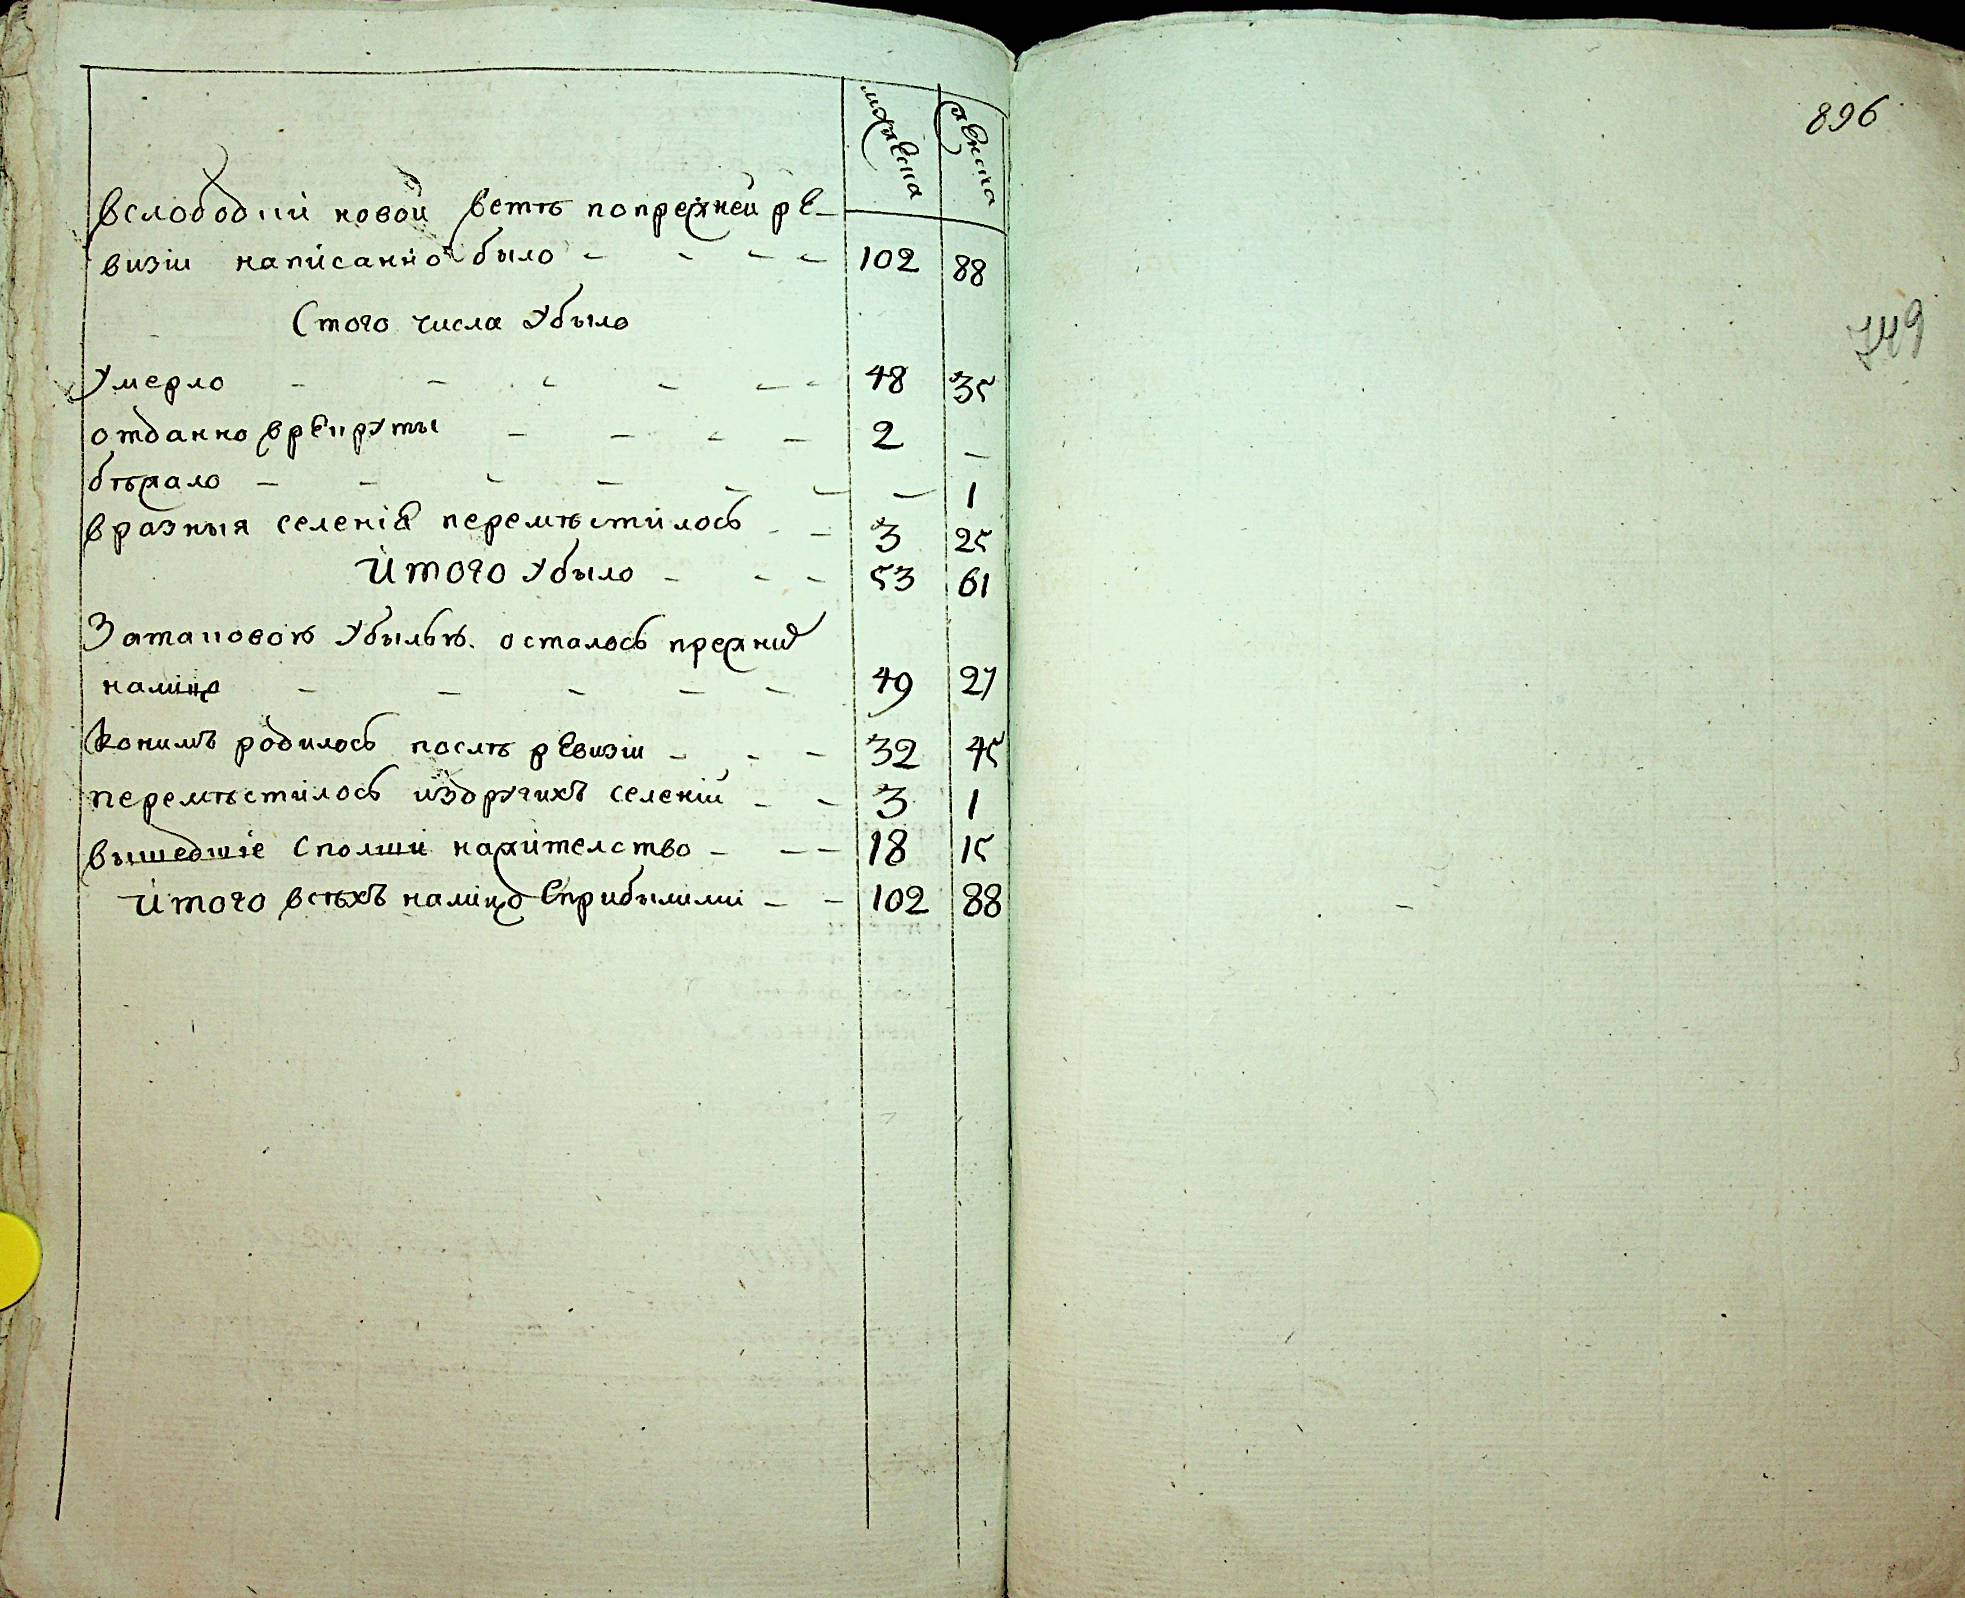 мужеска женска
вслободки новой ветѣ попрежней ре-
визіи написанно было - - - - 102 88
Стого числа убыло
умерло - - - - - - 48 35
отданно врекруты - - - - 2 -
бѣжало - - - - - - - 1
вразныя селенія перемѣстилось - - 3 25
Итого убыло - - - 53 61
Затаковою убылью осталось прежнихъ
налицо - - - - - 49 27
Конимъ родилось послѣ ревизіи - - - 32 45
перемѣстилось издругихъ селеній - - 3 1
вышедшіе сполши нажителство - - - 18 15
Итого всѣхъ налицо сприбылими - - 102 88
896
749